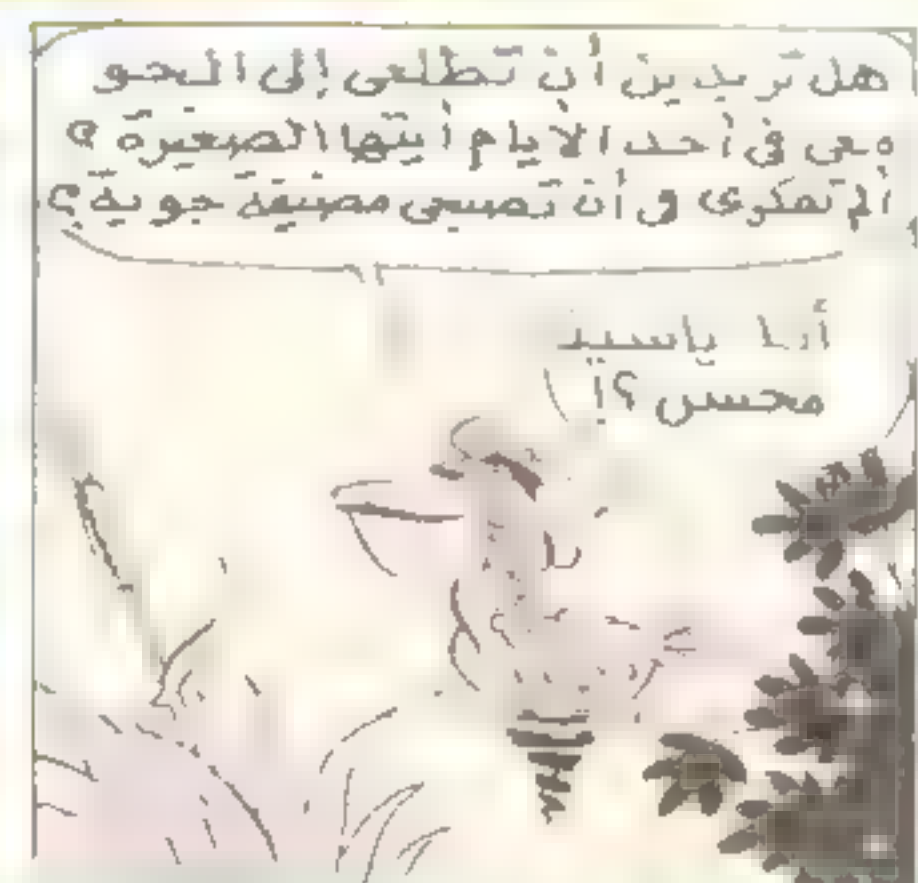 هل تريدين أن تطلعى إلى الجو
معى فى أحد الأيام أيتها الصغيرة ؟
ألم تفكرى فى أن تصبحى مضيفة جوية ؟
أنا ياسيد
محسن ؟!